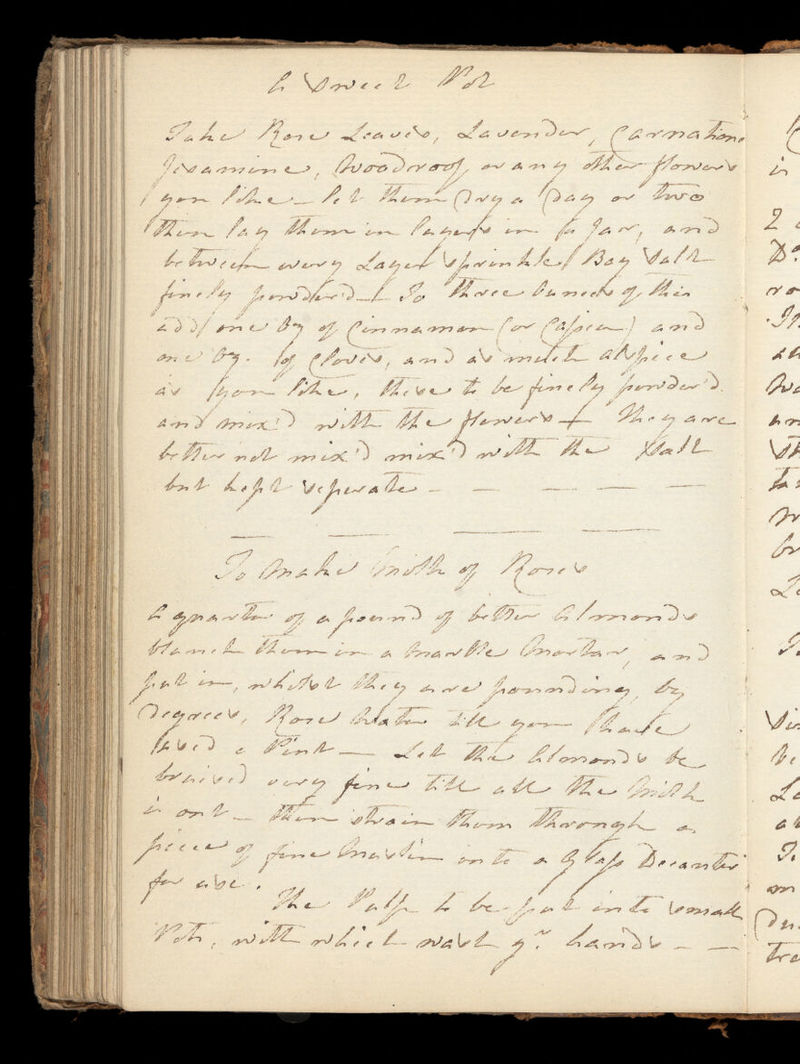 A Sweet Pot
Take Rose Leaves, Lavender, Carnations
Jesamine, Woodroof, or any other flowers
you like – let them dry a day or two
then lay them in layers in a Jar, and
between every Layer sprinkle Bay Salt
finely powder'd – To three ounces of this
add one oz of Cinnamon (or Cassia) and
one oz. of Cloves, and as much alspice
as you like, these to be finely powder'd
and mix'd with the flowers – They are
better not mix'd mix'd with the Salt
but kept seperate – – – – –
To make Milk of Roses
A quarter of a pound of bitter Almonds
blanch them in a Marble Mortar, and
put in, whilst they are pounding, by
degrees, Rose Water till you have
used a Pint – Let the Almonds be
bruised very fine till all the Milk
is out – then strain them through a
piece of fine Muslin into a Glass Decanter
for use.
The Pulp to be put into small
Pots, with which wash yr. hands – –